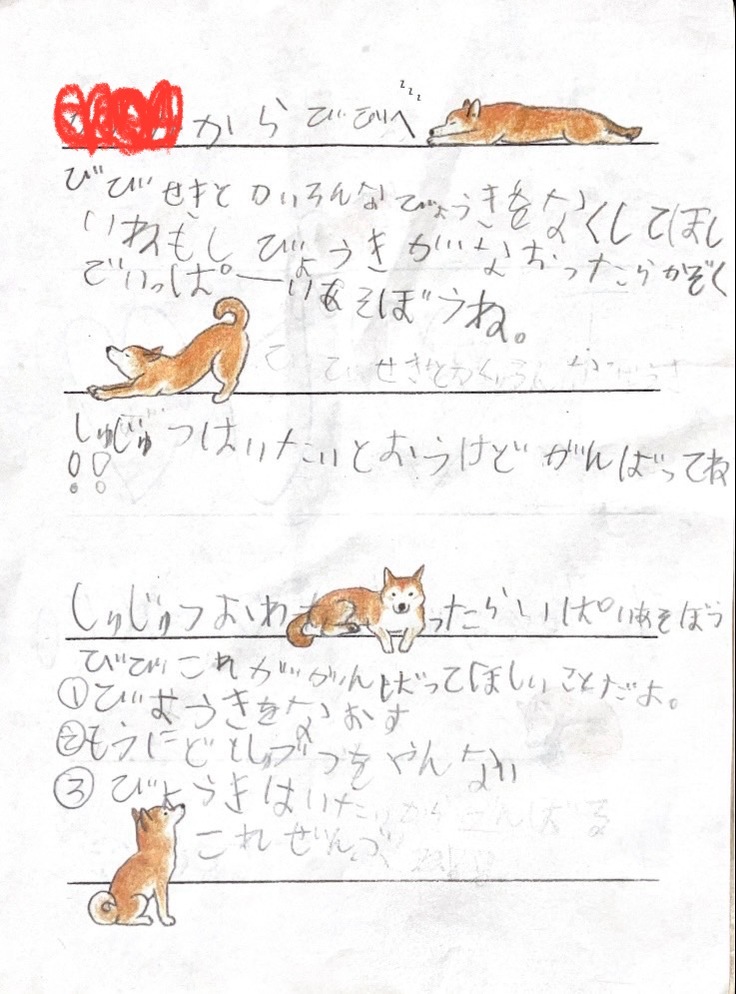 から びびへ
zzz
びび せきと かいろんな びょうきを なくしてほし
いね もし びょうきが なおったら かぞく
で いっぱーい あそぼうね。
せきと
しゅじゅつはいたいとおうけど がんばってね
!!
しゅじゅつ おわ ったら いっぱい あそぼう
びび これが がんばってほしい ことだよ。
① びようきを なおす
② もうにどと を やんない
③ びょうきは いたいから がんばる
これ ぜんぶ